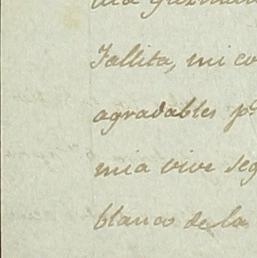 Fallita, mi co
agradables p.
mia vive seg
blanco de la